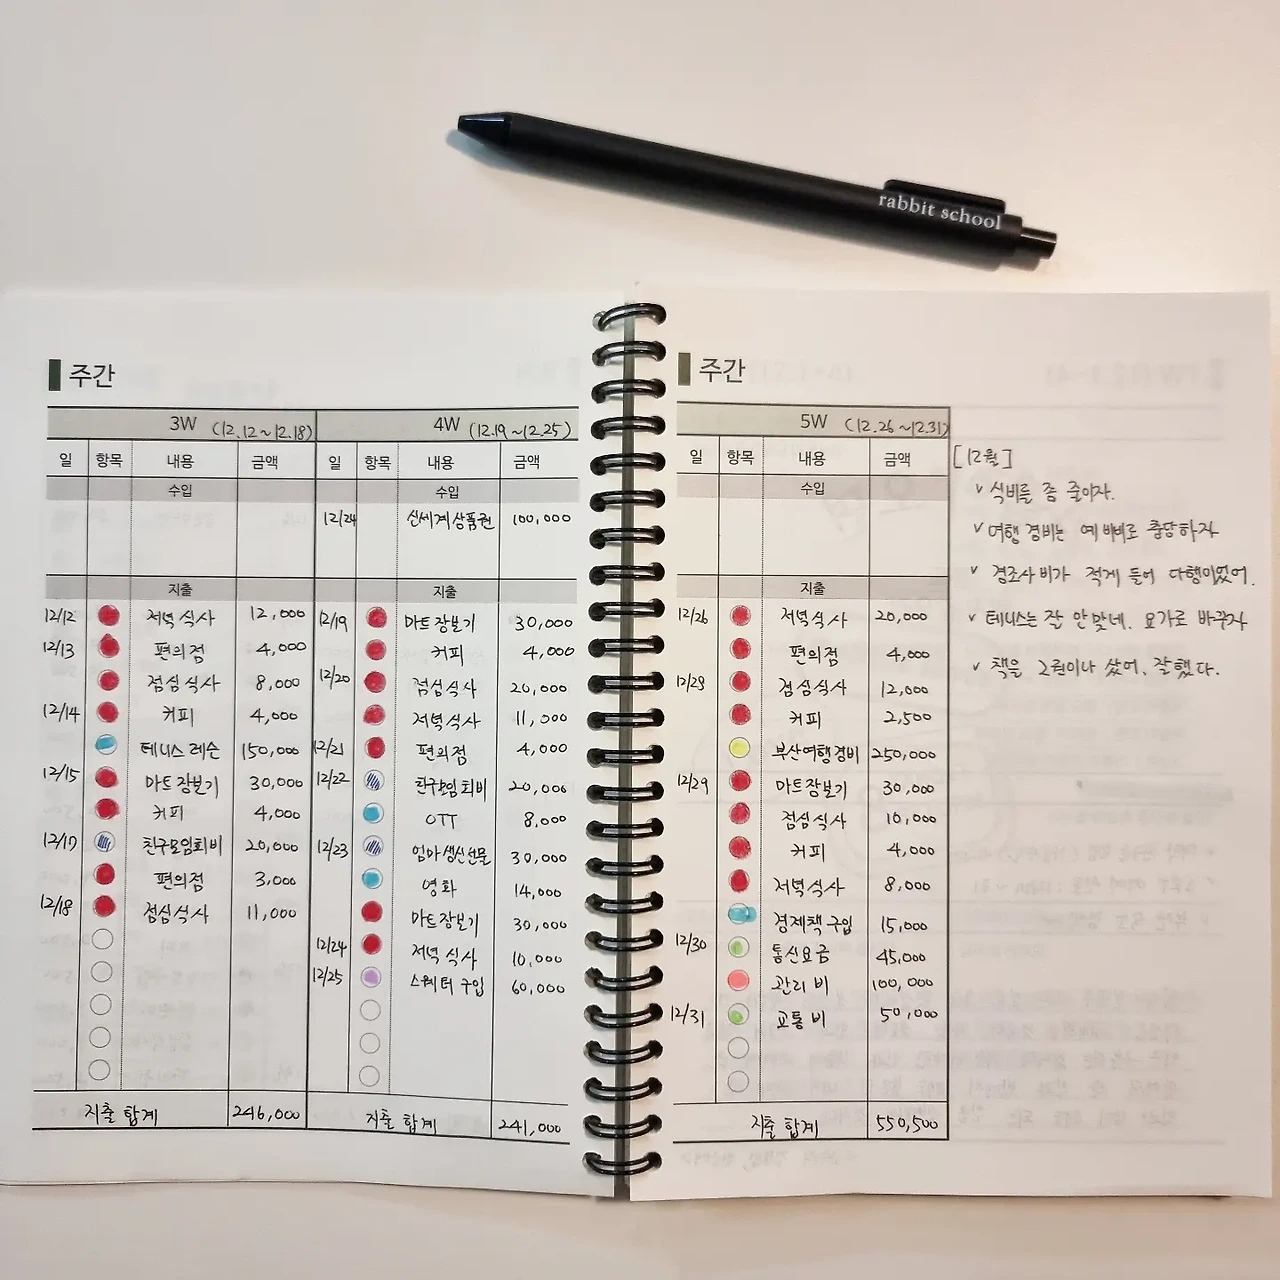 rabbit school
주간
3W (12.12~12.18)
일 항목 내용 금액
수입
지출
12/12 저녁 식사 12,000
12/13 편의점 4,000
점심식사 8,000
12/14 커피 4,000
테니스 레슨 150,000
12/15 마트 장보기 30,000
커피 4,000
12/17 친구모임회비 20,000
편의점 3,000
12/18 점심식사 11,000
지출 합계 246,000
4W (12.19~12.25)
일 항목 내용 금액
수입
12/24 신세계상품권 100,000
지출
12/19 마트 장보기 30,000
커피 4,000
12/20 점심식사 20,000
저녁식사 11,000
12/21 편의점 4,000
12/22 친구모임회비 20,000
OTT 8,000
12/23 엄마생신선물 30,000
영화 14,000
마트장보기 30,000
12/24 저녁 식사 10,000
12/25 스웨터 구입 60,000
지출 합계 241,000
주간
5W (12.26~12.31)
일 항목 내용 금액
수입
지출
12/26 저녁식사 20,000
편의점 4,000
12/28 점심식사 12,000
커피 2,500
부산여행경비 250,000
12/29 마트장보기 30,000
점심식사 10,000
커피 4,000
저녁식사 8,000
경제책 구입 15,000
12/30 통신요금 45,000
관리비 100,000
12/31 교통비 50,000
지출 합계 550,500
[12월]
v 식비를 좀 줄이자.
v 여행 경비는 예비비로 충당하자
v 경조사비가 적게 들어 다행이었어.
v 테니스는 잘 안 맞네. 요가로 바꾸자
v 책을 2권이나 샀어. 잘했다.